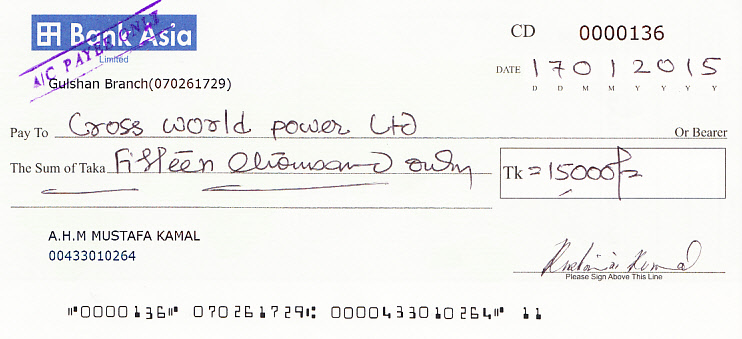 Bank Asia
Limited
A/C PAYEE ONLY
Gulshan Branch(070261729)
CD 0000136
DATE 17012015
D D M M Y Y Y Y
Pay To Cross world power Ltd Or Bearer
The Sum of Taka Fifteen thousand only Tk = 15000/=
A.H.M MUSTAFA KAMAL
00433010264
Kamal
Please Sign Above This Line
⑈0000136⑈ 070261729⑆ 0000433010264⑈ 11